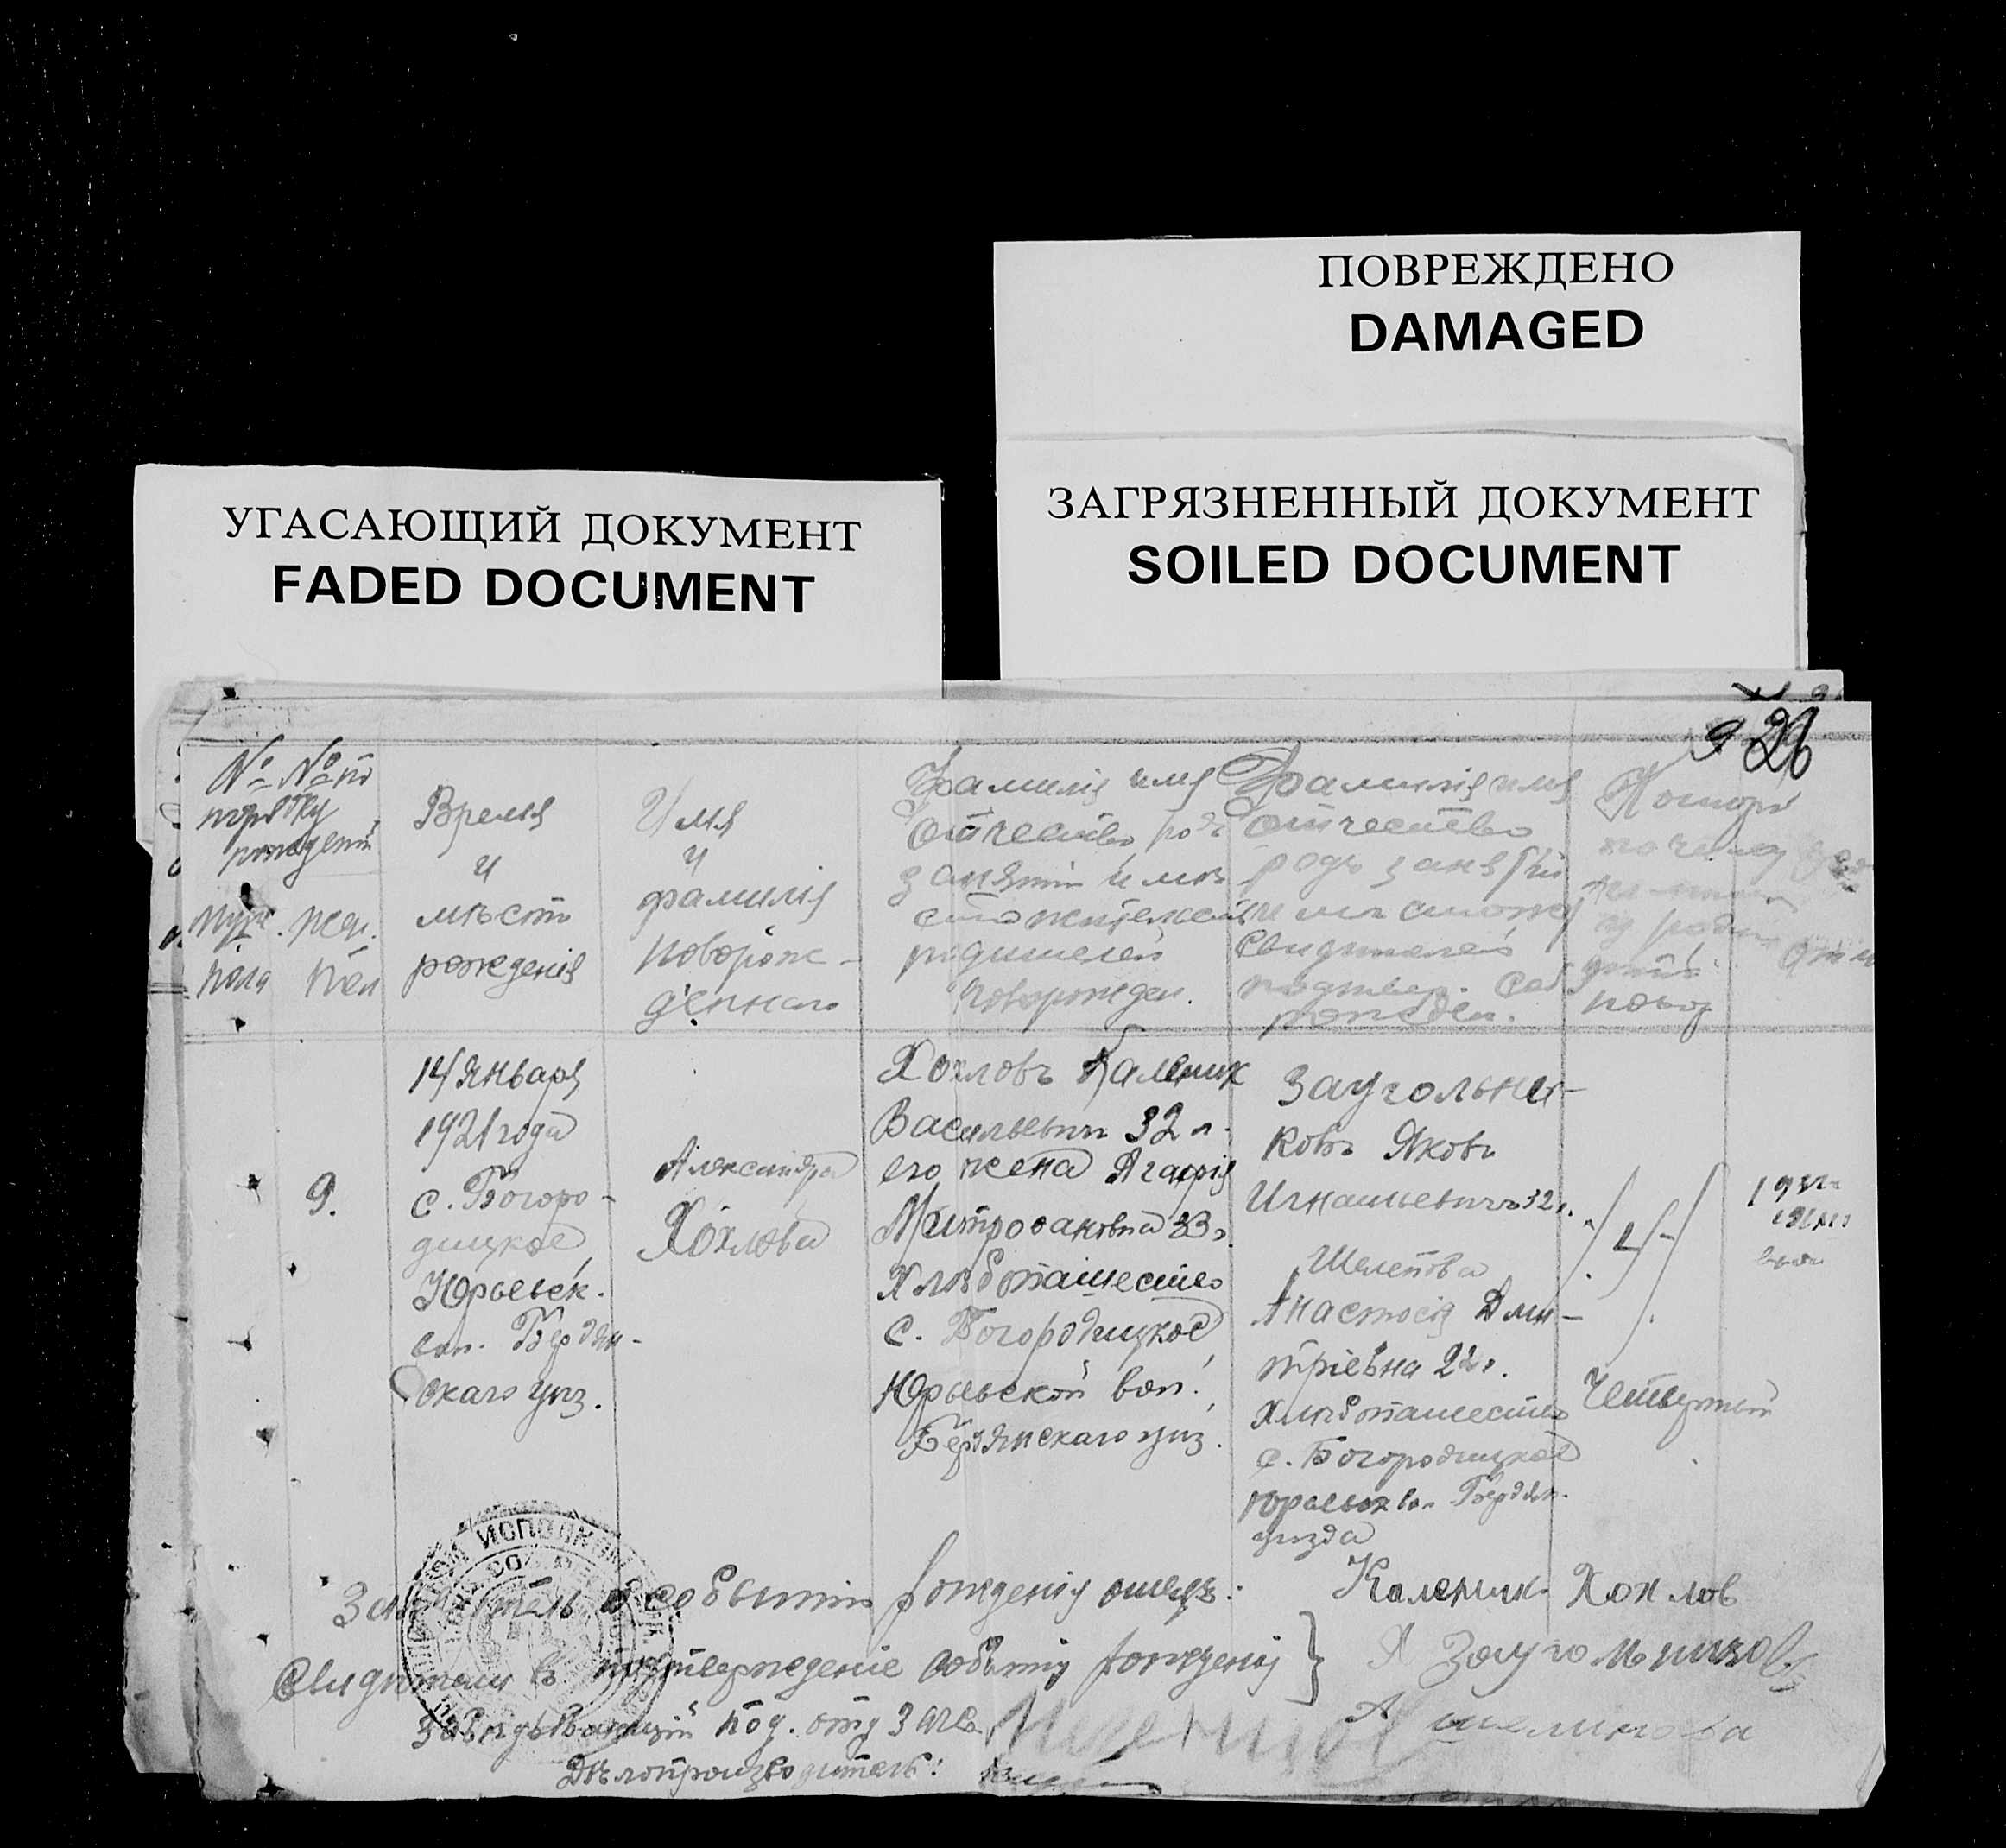 ПОВРЕЖДЕНО
DAMAGED
ЗАГРЯЗНЕННЫЙ ДОКУМЕНТ
SOILED DOCUMENT
УГАСАЮЩИЙ ДОКУМЕНТ
FADED DOCUMENT
26
№ № по
порядку
рожденій
муж. жен.
пола пол
Время
и
мѣсто
рожденія
Имя
и
фамилія
новорож-
деннаго
Фамилія имя
отчество родъ
занятій и мѣ
сто жительств
родителей
новорожден.
Фамилія имя
отчество
родъ занятій
и мѣстожи
свидѣтелей
подтвер. соб
рожден.
Которы
по счету
из роди
дитя
новор
9.
14 Января
1921 года
с. Богоро-
дицкое
Юрьевск.
вол. Бердян-
скаго уѣз.
Александра
Хохлова
Хохловъ Каленик
Васильевичъ 32 л.
его жена Агафія
Митрофановна 33 л.
Хлѣбопашество
с. Богородицкое
Юрьевской вол.
Бердянскаго уѣз.
Заугольни-
ковъ Яковъ
Игнатьевичъ 32 л.
Шелепова
Анастасія Дми-
тріевна 22 л.
Хлѣбопашество
с. Богородицкое
Юрьевск вол. Бердян.
уѣзда
4
Четвертый
ИСПОЛКОМ
событіи рожденія отецъ:
Каленик Хохлов
Свидѣтели в подтвержденіе событія рожденія }
Я Заугольников
Завѣдывающій под. отд ЗАГС
А
Дѣлопроизводитель: